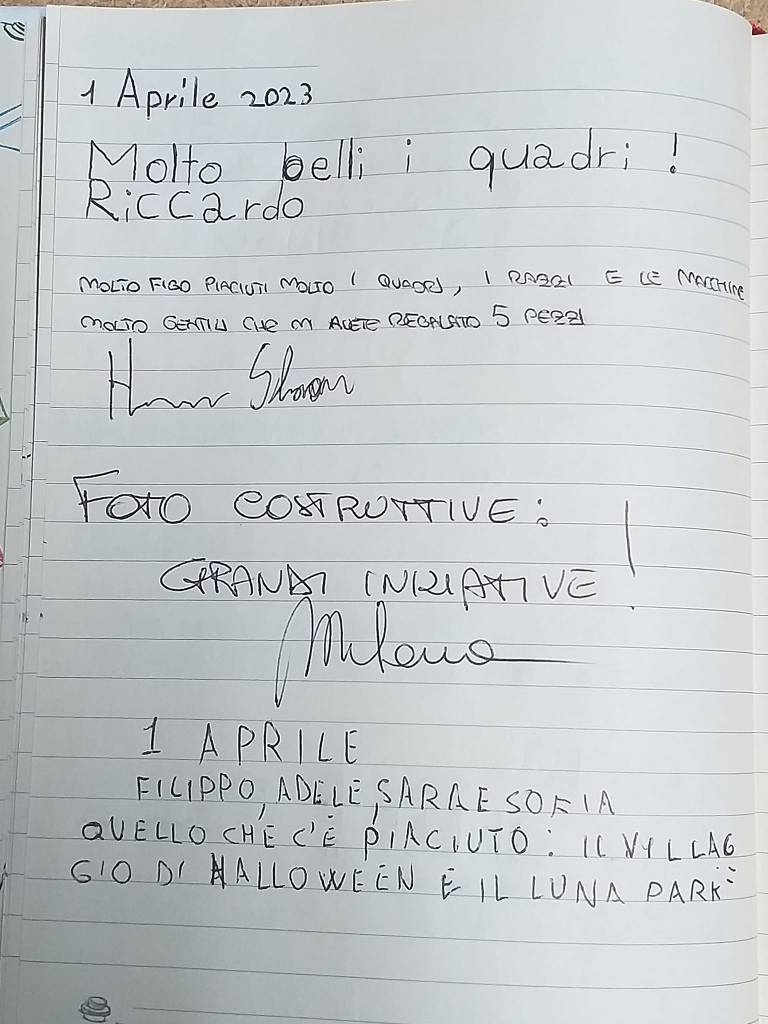 1 Aprile 2023
Molto belli i quadri!
RiCCardo
MOLTO FIGO PIACIUTI MOLTO I QUADRI, I RAZZI E LE MACCHINE
MOLTO GENTILI CHE MI AVETE REGALATO 5 PEZZI
FOTO COSTRUTTIVE:
GRANDI INIZIATIVE!
Milena
1 APRILE
FILIPPO, ADELE, SARA E SOFIA
QUELLO CHE C'È PIACIUTO: IL VILLAG
GIO DI HALLOWEEN E IL LUNA PARK